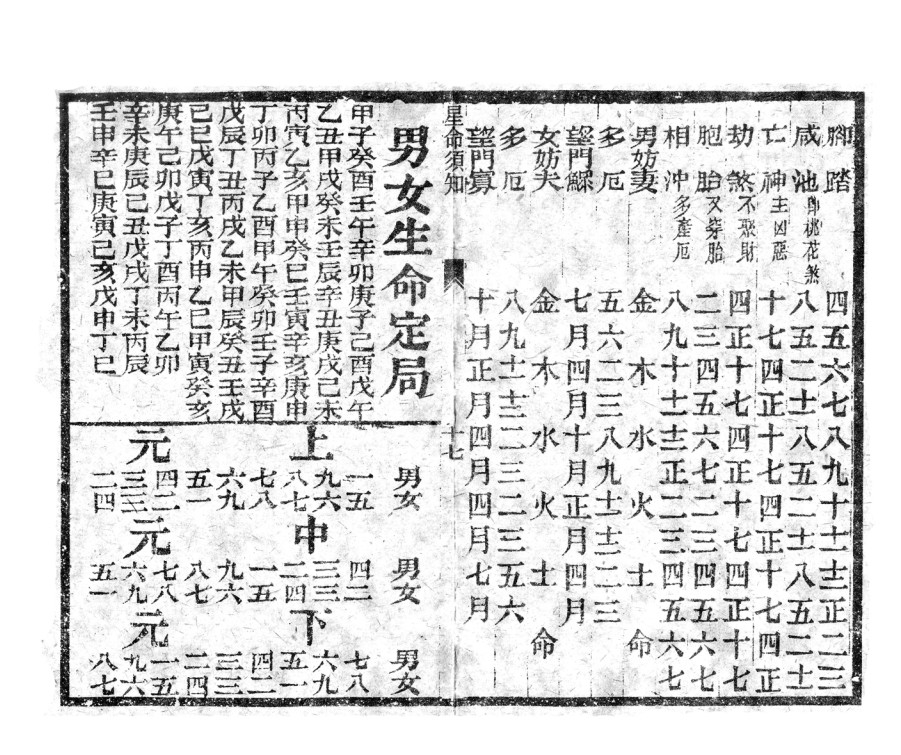 腳踏 四五六七八九十十一十二正二三
咸池 即桃花煞 八五二十一八五二十一八五二十一
亡神 主凶惡 十七四正十七四正十七四正
劫煞 不聚財 四正十七四正十七四正十七
胞胎 又等胎 二三四五六七二三四五六七
相沖 多產厄 八九十十一十二正二三四五六七
男妨妻 金木水火土命
多厄 五六二三八九十一十二二三
望門鰥 七月四月十月正月四月
女妨夫 金木水火土命
多厄 八九十一十二二三二三五六
望門寡 十月正月四月四月七月
星命須知 十七
男女生命定局
甲子癸酉壬午辛卯庚子己酉戊午
乙丑甲戌癸未壬辰辛丑庚戌己未
丙寅乙亥甲申癸巳壬寅辛亥庚申
丁卯丙子乙酉甲午癸卯壬子辛酉
戊辰丁丑丙戌乙未甲辰癸丑壬戌
己巳戊寅丁亥丙申乙巳甲寅癸亥
庚午己卯戊子丁酉丙午乙卯
辛未庚辰己丑戊戌丁未丙辰
壬申辛巳庚寅己亥戊申丁巳
上元
男女 一五 九六 八七 七八 六九 五一 四二 三三 二四
中元
男女 四二 三三 二四 一五 九六 八七 七八 六九 五一
下元
男女 七八 六九 五一 四二 三三 二四 一五 九六 八七